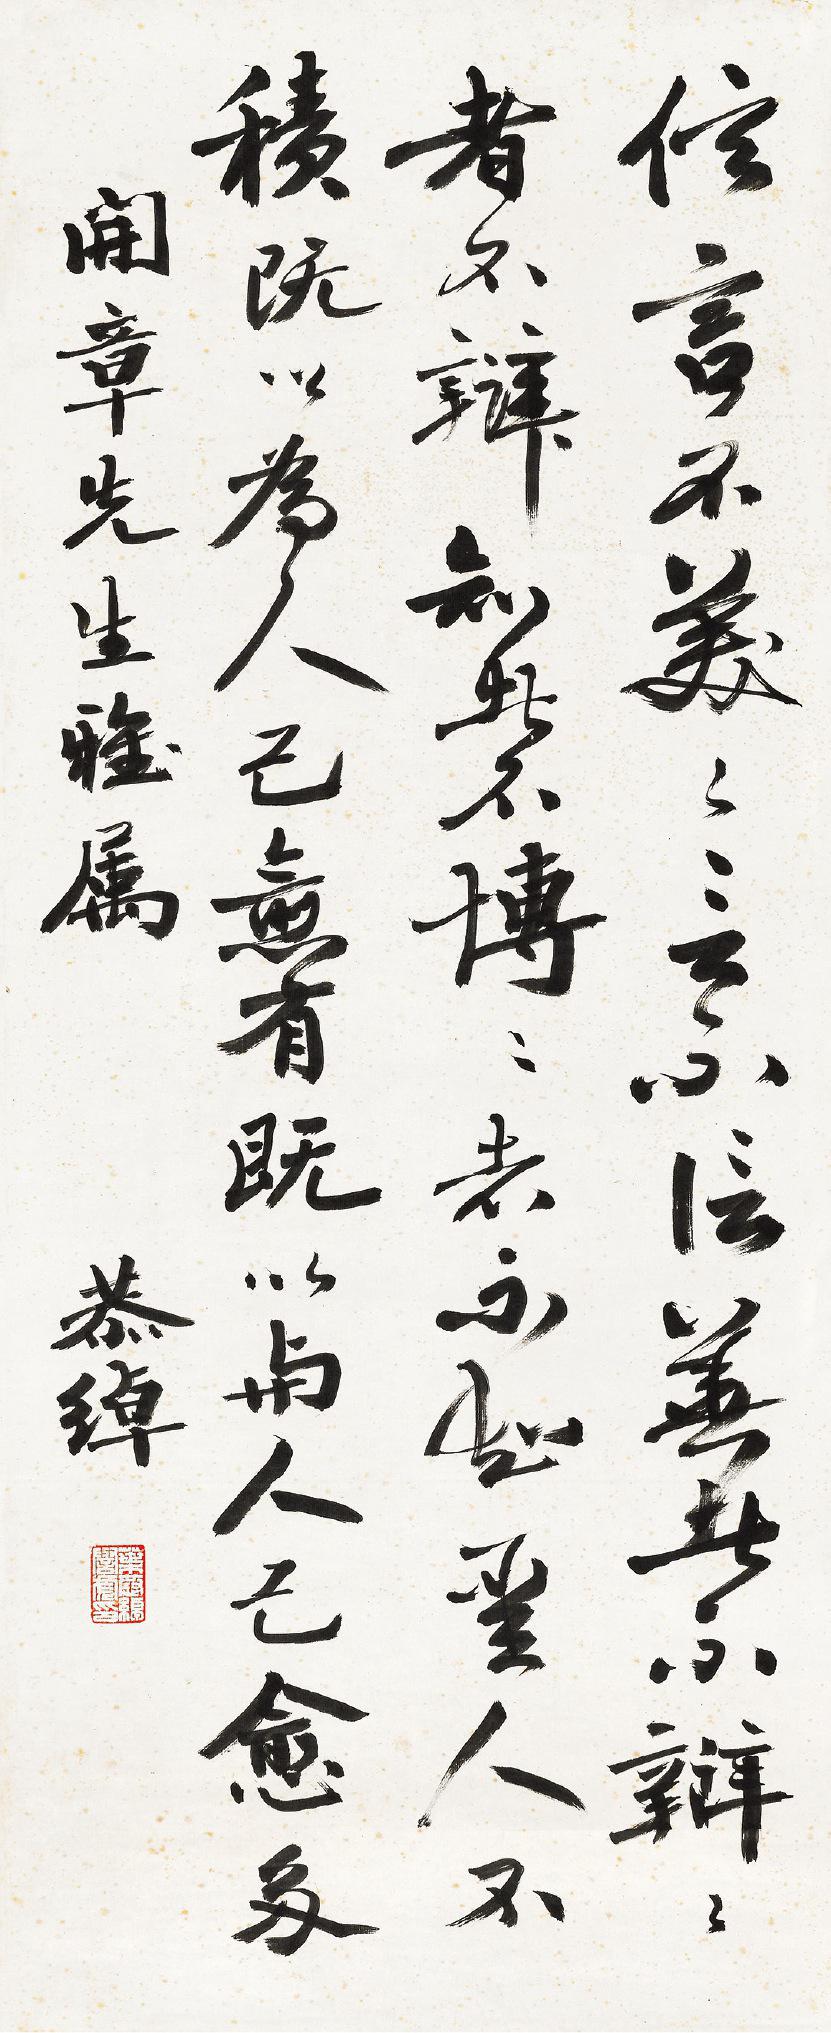 信言不美〻言不信善者不辯〻
者不辯知者不博〻者不知聖人不
積既以為人己愈有既以与人己愈多
開章先生雅属
恭綽